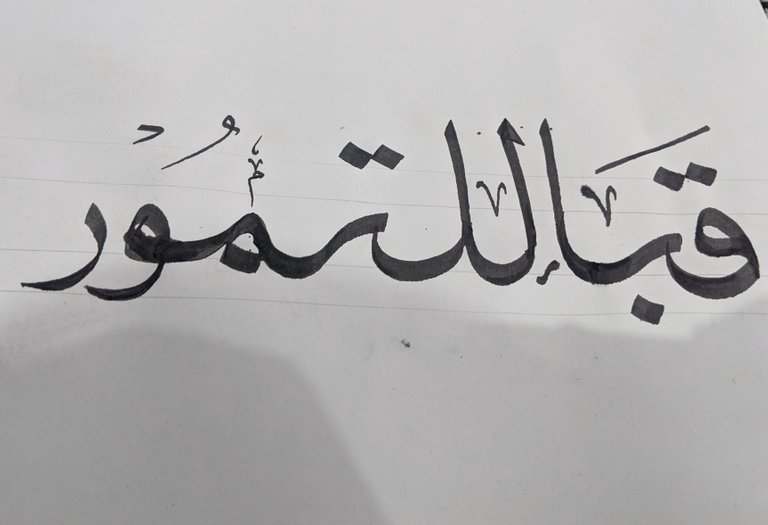 قبا للتمور